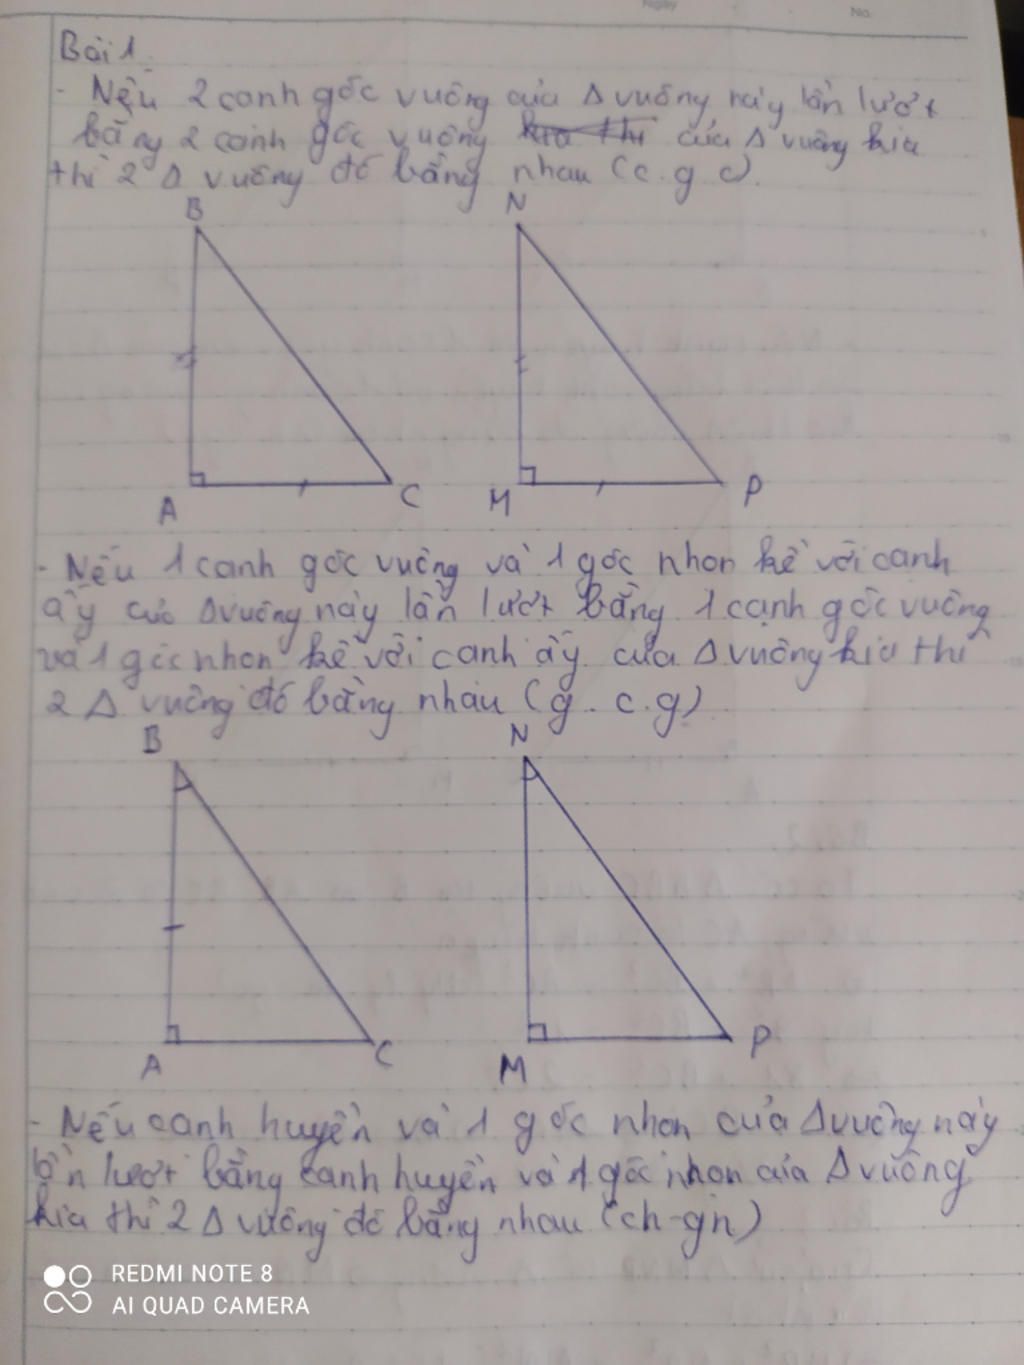 Ngày
No.
Bài 1.
- Nếu 2 canh góc vuông của Δ vuông này lần lượt
bằng 2 canh góc vuông kia thì của Δ vuông kia
thì 2 Δ vuông đó bằng nhau (c. g c).
B N
A C M P
- Nếu 1 canh góc vuông và 1 góc nhon kề với canh
ấy của Δ vuông này lần lượt bằng 1 cạnh góc vuông
và 1 góc nhon kề với canh ấy của Δ vuông kia thì
2 Δ vuông đó bằng nhau (g. c. g)
B N
A C M P
- Nếu canh huyền và 1 góc nhon của Δ vuông này
lần lượt bằng canh huyền và 1 góc nhon của Δ vuông
kia thì 2 Δ vuông đó bằng nhau (ch-gn)
REDMI NOTE 8
AI QUAD CAMERA